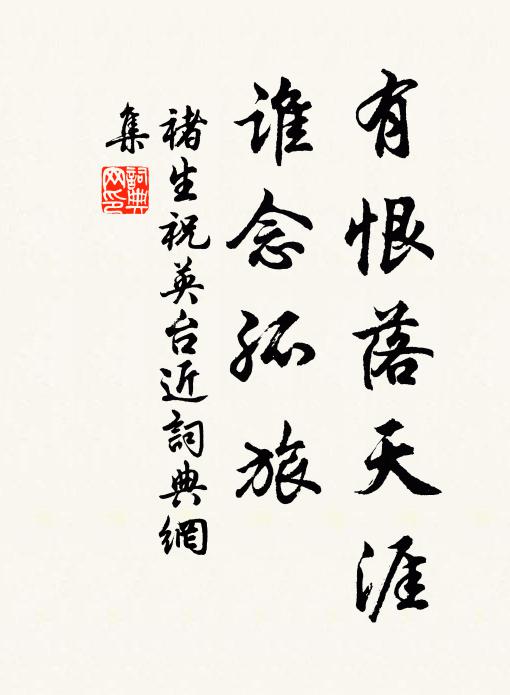 有恨落天涯
谁念孤旅
褚生祝英台近詞典網
集
詞典
网印